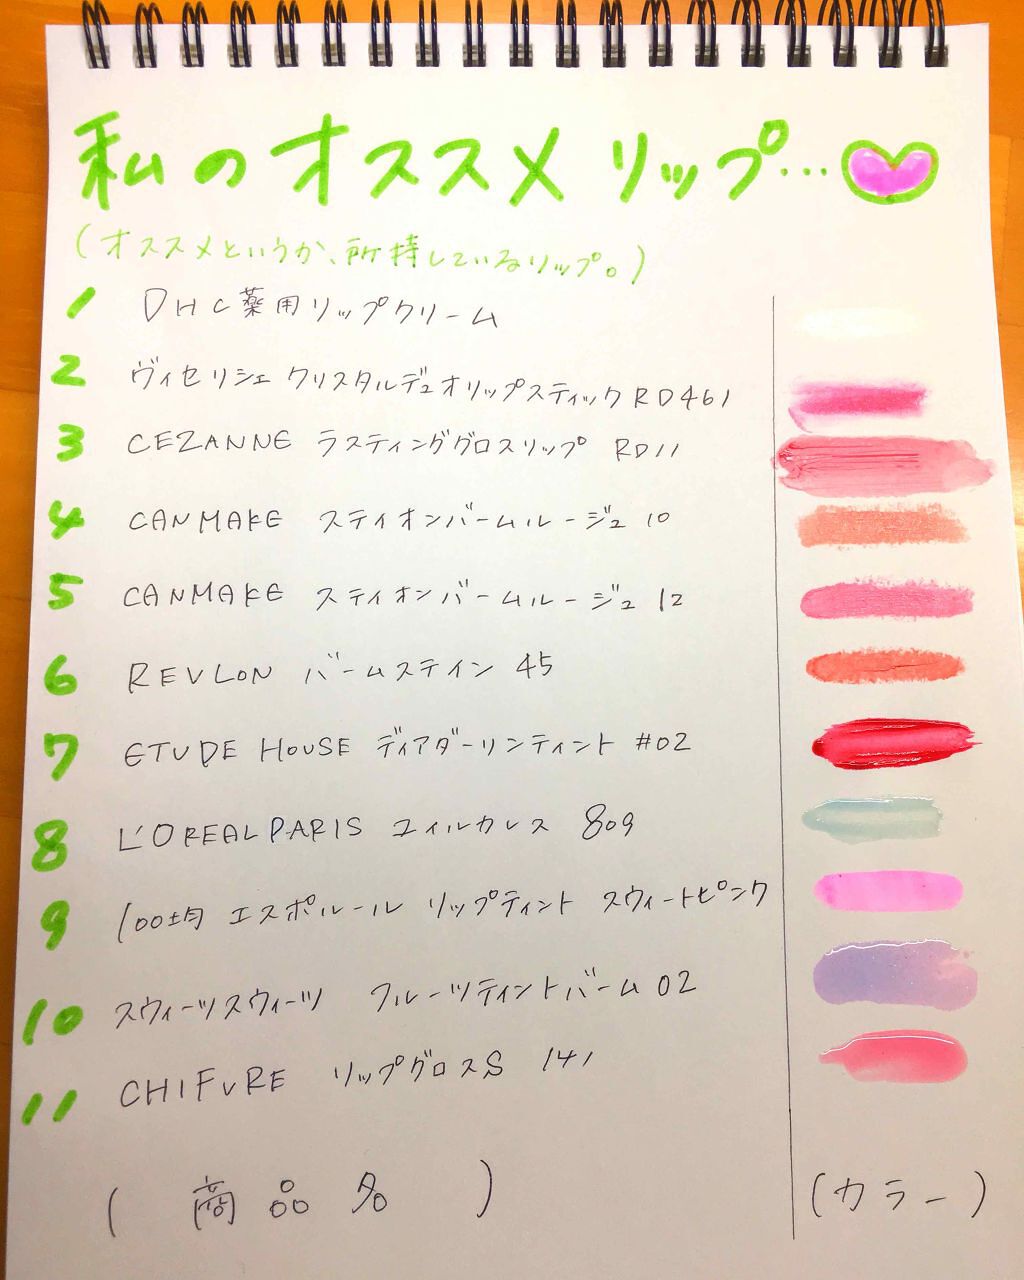 私のオススメリップ…
(オススメというか、所持しているリップ。)
1 DHC薬用リップクリーム
2 ヴィセリシェ クリスタルデュオリップスティックRD461
3 CEZANNE ラスティンググロスリップ RD11
4 CANMAKE ステイオンバームルージュ 10
5 CANMAKE ステイオンバームルージュ 12
6 REVLON バームステイン 45
7 ETUDE HOUSE ディアダーリンティント #02
8 L'OREAL PARIS ユイルカレス 809
9 100均 エスポルール リップティント スウィートピンク
10 スウィーツスウィーツ フルーツティントバーム 02
11 CHIFURE リップグロスS 141
(商品名) (カラー)